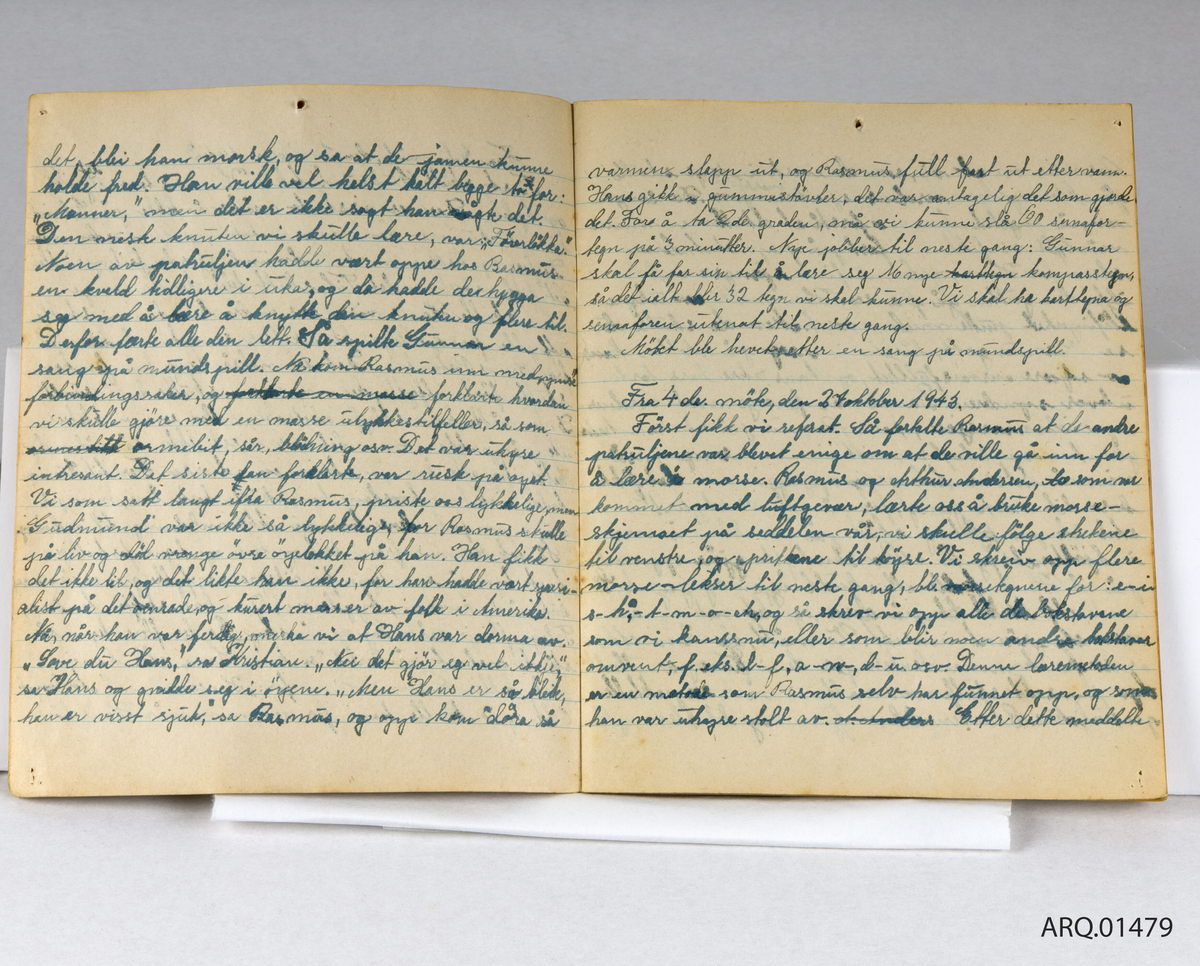 det, blei han morsk, og sa at de jamen kunne
holde fred. Han ville vel helst kalt begge to for:
„Manner,” men det er ikke sagt han vågte det.
Den neste knuten vi skulle lære, var: „Töverlökka.”
Noen av patruljen hadde vært oppe hos Rasmus
en kveld tidligere i uka, og da hadde de hygga
seg med å lære å knytte den knuten og flere til.
Derfor færte alle den lett. Så spilte Gunnar en
sang på munnspill. Nå kom Rasmus inn med
forbindingssaker, og forklarte en masse forklarte hvordan
vi skulle gjöre med en masse ulykkestilfeller, så som
ormebitt ormebit, sår, blödning osv. Det var uhyre
intresant. Det siste han forklarte, var rusk på öyet.
Vi som satt langt ifra Rasmus, priste oss lykkelige, men
Gudmund var ikke så lykkelig, for Rasmus skulle
på liv og död vrenge övre öyelokket på han. Han fikk
det ikke til, og det likte han ikke, for han hadde vært spesi-
alist på det område, og kurert masser av folk i Amerika.
Nå, når han var ferdig, merka vi at Hans var dorma av.
„Sove du Hans,” sa Kristian. „Nei det gjör eg vel ikkje,”
sa Hans og gnidde seg i öyene. „Men Hans er så blek,
han er visst sjuk,” sa Rasmus, og opp kom döra så
varmen slapp ut, og Rasmus full fast ut etter vann.
Hans gikk i gummistövler, det var antagelig det som gjorde
det. For å ta 2de. graden, må vi kunne slå 60 semafor-
tegn på 3 minutter. Nye jobber til neste gang: Gunnar
skal få for sin til å lære seg 16 nye karttegn kompasstegn,
så det ialt blir 32 tegn vi skal kunne. Vi skal ha karttegna og
semaforen utenat til neste gang.
Mötet ble hevet etter en sang på mundspill.
Fra 4de. möte, den 27 oktober 1943.
Först fikk vi referat. Så fortalte Rasmus at de andre
patruljene var blevet enige om at de ville gå inn for
å lære å morse. Rasmus og Arthur Andersen, to som var
kommet med luftgevær, lærte oss å bruke morse-
skjemaet på seddelen vår; vi skulle fölge strekene
til venstre, og prikkene til höyre. Vi skreiv opp flere
morse-lekser til neste gang, bl. tegnene for: e-i-
s-h, -t-m-o-ch, og så skrev vi opp alle de bokstavene
som vi kans nu, eller som blir noen andre bokstaver
omvent, f. eks. l-f, a-n, d-u. osv. Denne læremetoden
er en metode som Rasmus selv har funnet opp, og som
han var uhyre stolt av. Etter dette meddelte
ARQ.01479